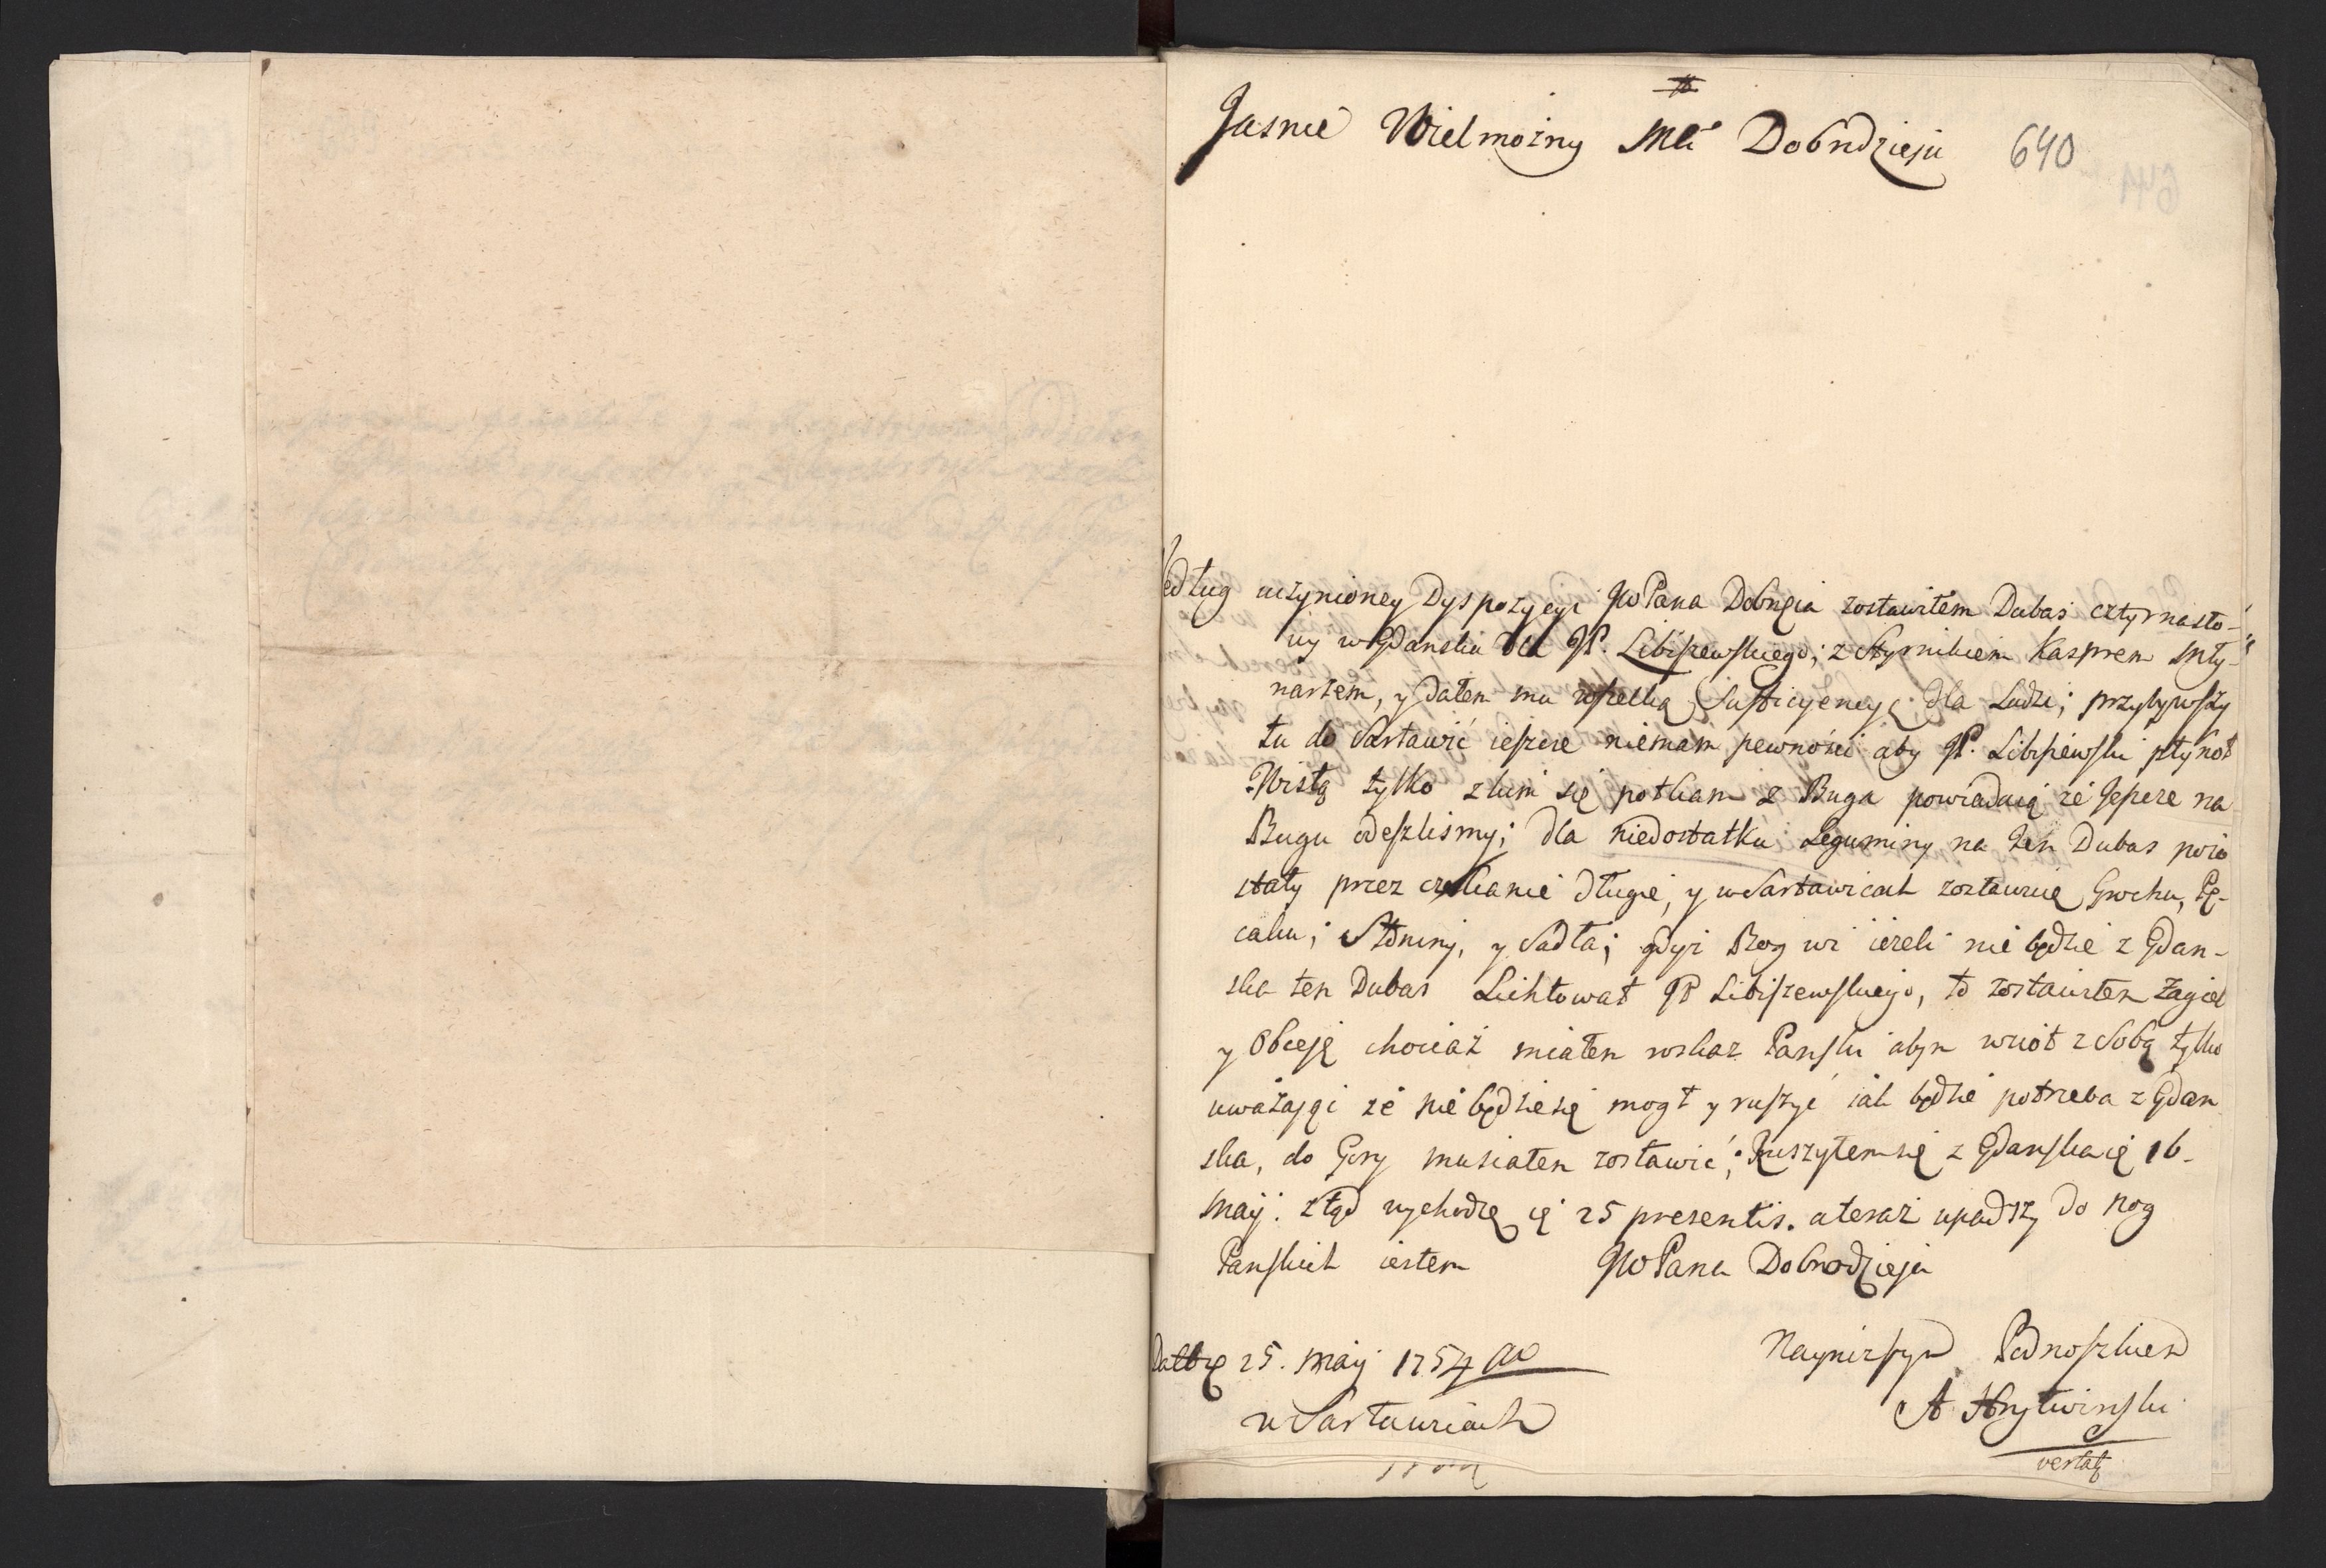 Jasnie Wielmożny Mci Dobrdzieju 640
edług uczynioney Dyspozycyi JWPana Dobrzeia zostawiłem Dubas cztyrnasto-
wy w Gdansku dla JP. Libiszewskiego; z Styrnikiem Kasprem Mły-
narzem, y dałem mu wszelką Sufficyencyę dla Ludzi; przybywszy
tu do Sartawic ieszcze niemam pewności aby JP. Libiszewski płynoł
Wisłą tylko z kim się potkam z Buga powiadaią że Jeszcze na
Bugu odeszlismy; dla niedostatku Leguminy na ten Dubas pozo
stały przez czekanie długie, y w Sartawicach zostawuię Grochu, Pę-
caku; Słoniny, y Sadła; gdyż Bog wi ieżeli nie będzie z Gdan-
ska ten Dubas Lichtował JP Libiszewskiego, to zostawiłem Żagiel
y Obceję chociaż miałem roskaz Panski abym wzioł z Sobą tylko
uważaiąc że nie będzie się mogł y ruszyć iak będzie potrzeba z Gdan
ska, do Gory musiałem zostawić; Ruszyłem się z Gdanska ię 16-
Maij. ztąd wychodzę ię 25 presentis. a teraz upadszy do nog
Panskich iestem JWPana Dobrodzieja
Datt ę 25. Maij 1754 Ao
w Sartawicach
Nayniszym Podnoszkiem
A Hrytwinski
vertatę